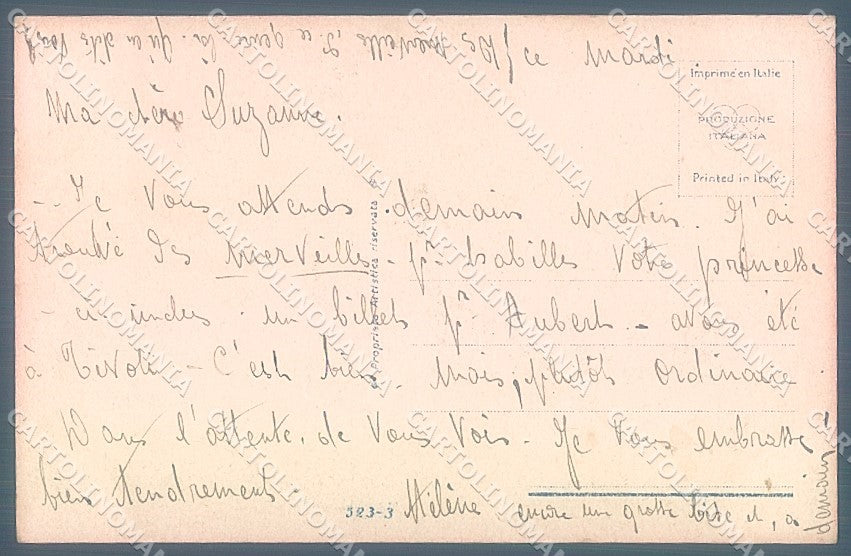 ce mardi
Imprimé en Italie
PRODUZIONE
ITALIANA
Printed in Italy
Ma chère Suzanne.
Je vous attends demain matin. J'ai
trouvé des merveilles - pr habiller votre princesse
un billet pr Aubert - avons été
à Tivoli - C'est bien. Mais, plutôt ordinaire
Dans l'attente de vous voir - Je vous embrasse
bien tendrement
Hélène
encore une grosse bise et, à
demain!
Proprietà Artistica riservata
523-3
CARTOLINOMANIA